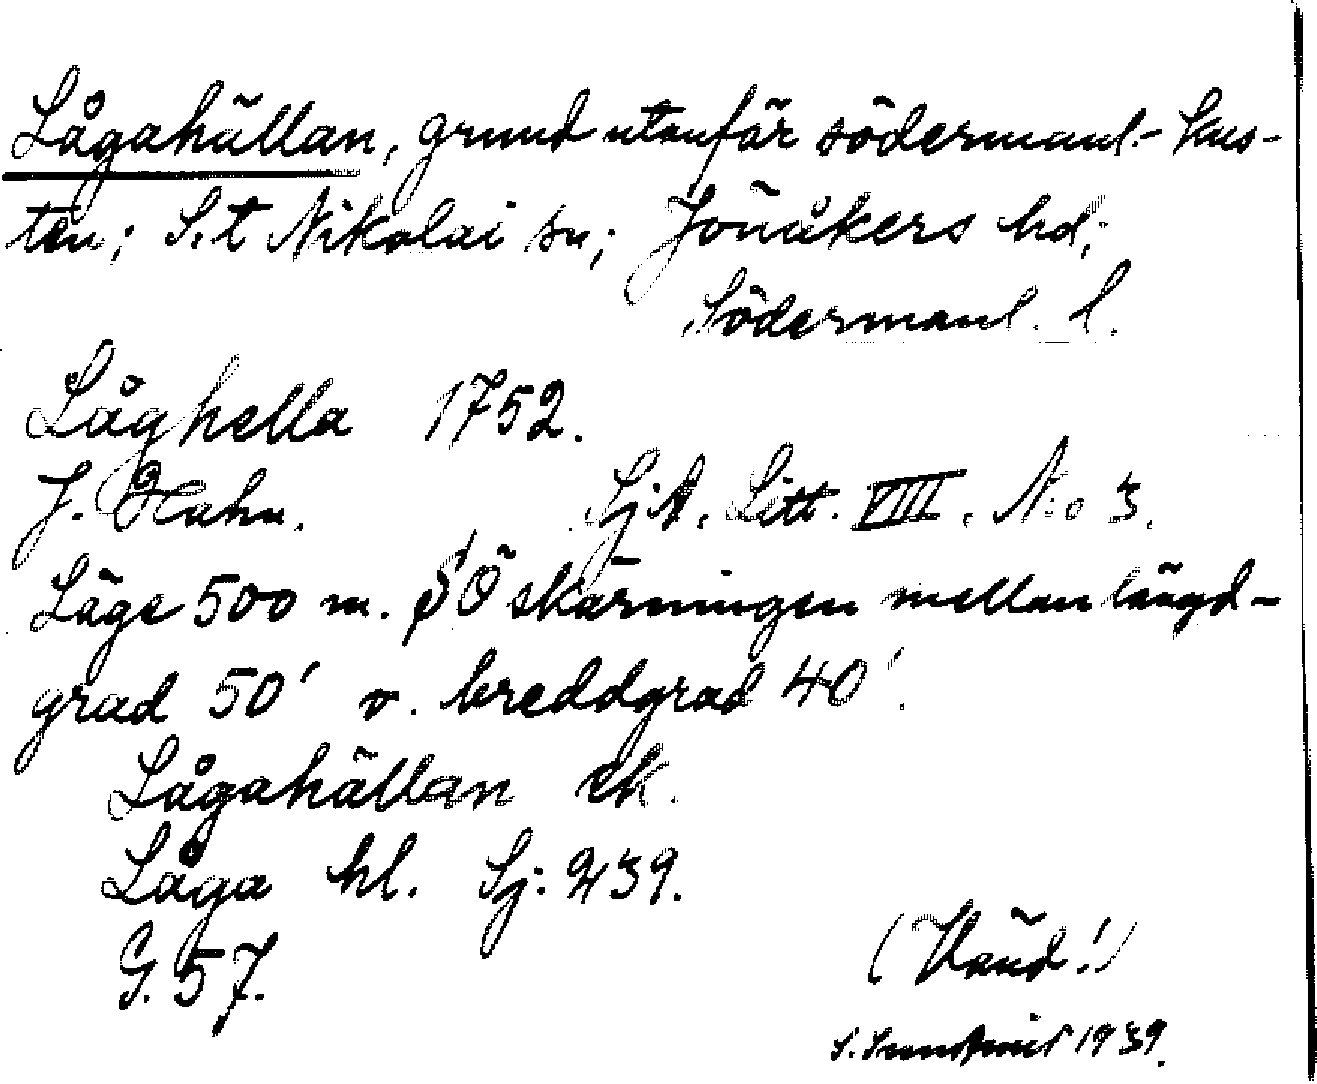 Lågahällan, grund utanför södermanl. kus-
ten; S:t Nikolai sn; Jönåkers hd;
Södermanl. l.
Låghella 1752.
J. Hahn. SjA. Litt. VIII. N:o 3.
Läge 500 m. SÖ skärningen mellan längd-
grad 50' o. breddgrad 40'.
Lågahällan ek.
Låga hl. Sj. 239.
G. 57.
(Vänd!)
S. 1939.